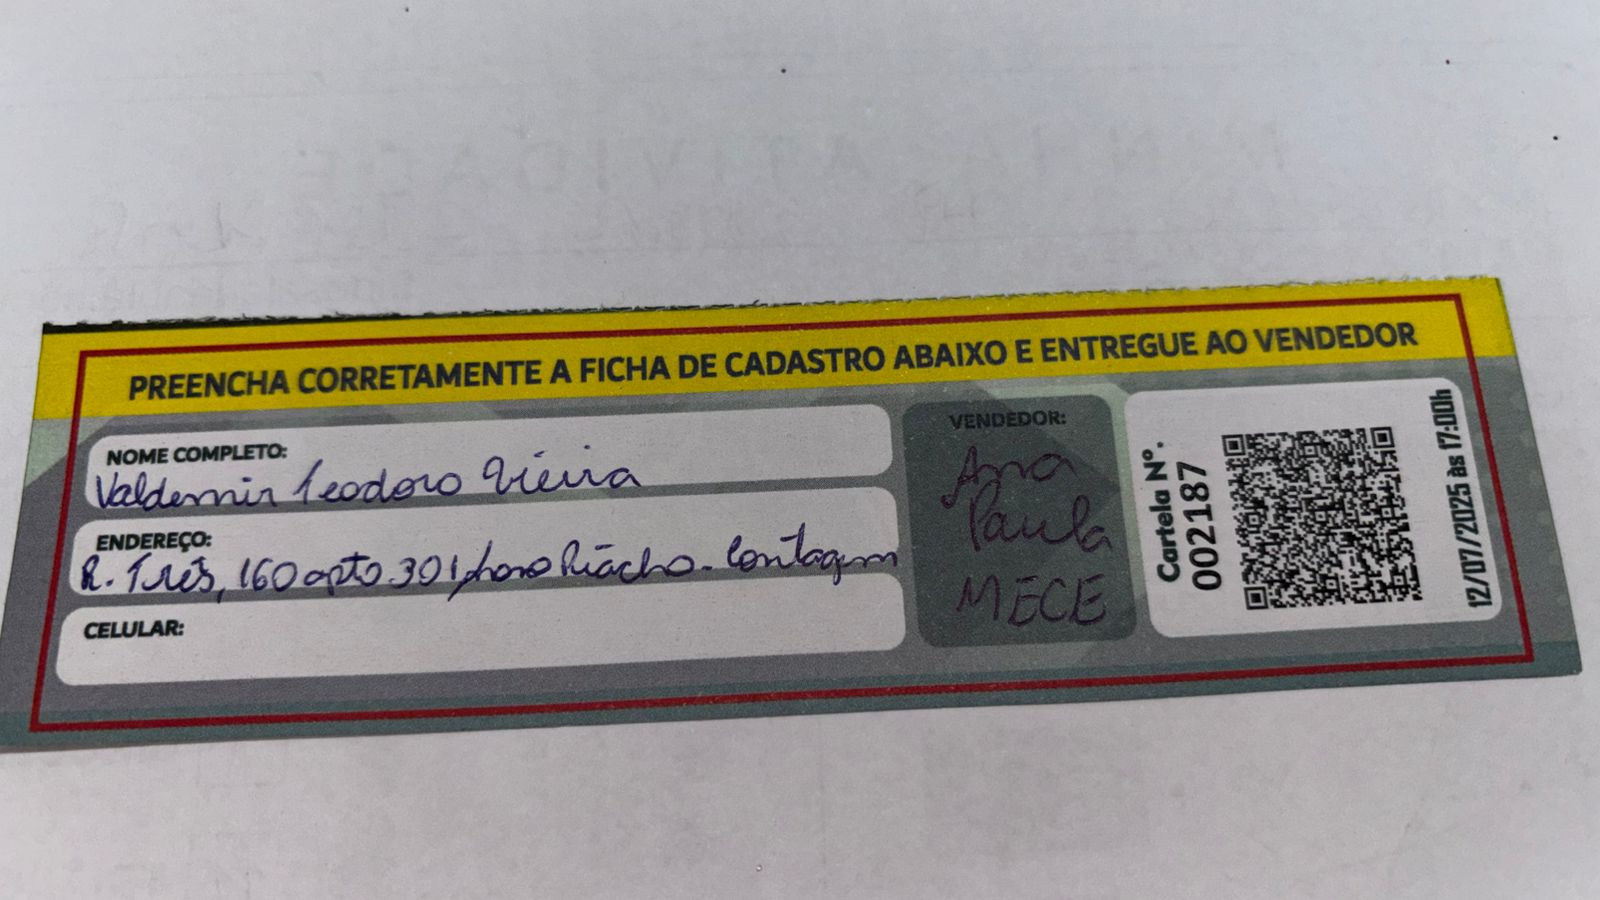 PREENCHA CORRETAMENTE A FICHA DE CADASTRO ABAIXO E ENTREGUE AO VENDEDOR
NOME COMPLETO:
Valdemir Teodoro Vieira
ENDEREÇO:
R. Três, 160 apto. 301, Riacho - Contagem
CELULAR:
VENDEDOR:
Ana
Paula
MECE
Cartela Nº.
002187
12/07/2025 às 17:00h